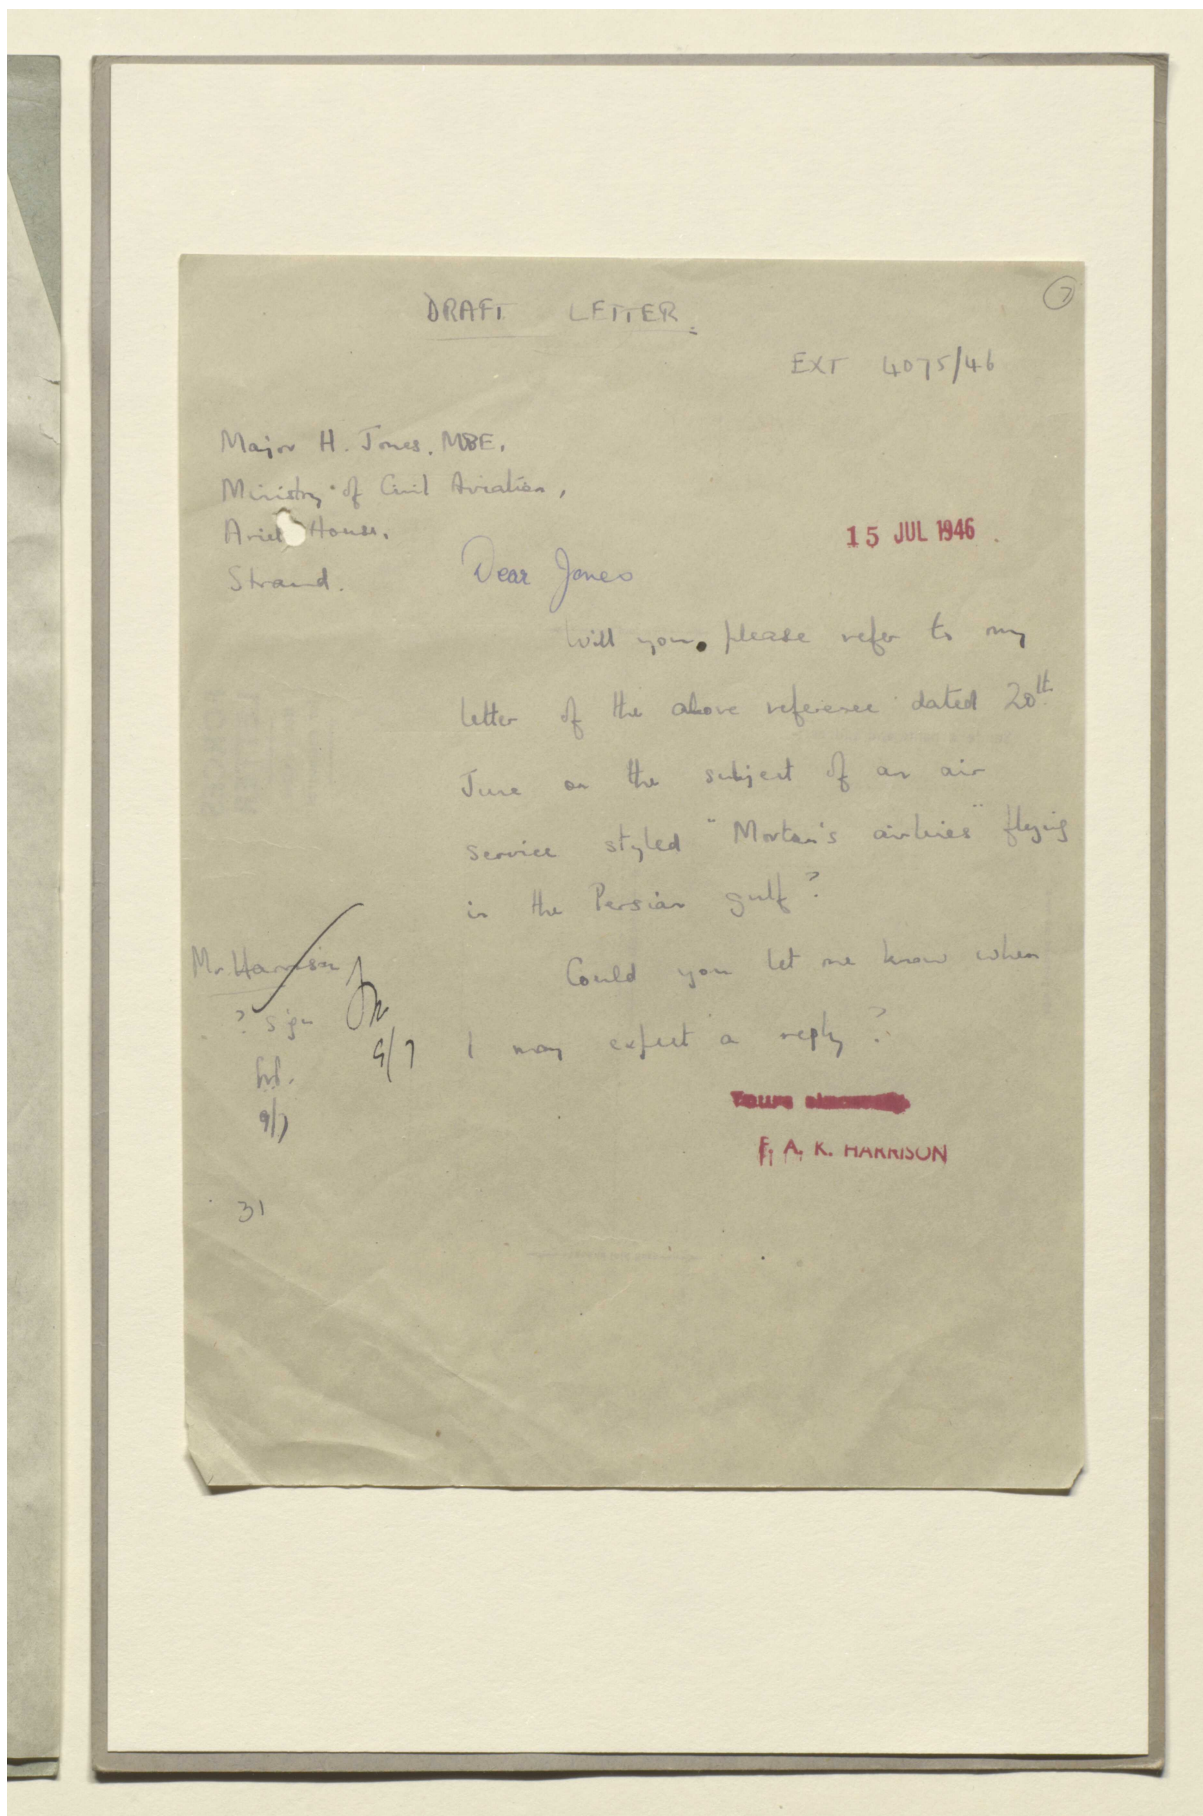 7
DRAFT LETTER.
EXT 4075/46
Major H. Jones. MBE.
Ministry of Civil Aviation,
Ariel House.
Strand.
15 JUL 1946
Dear Jones
Will you please refer to my
letter of the above reference dated 20th
June on the subject of an air
service styled "Morton's airlines" flying
in the Persian gulf?
Could you let me know when
I may expect a reply?
Yours sincerely
F. A. K. HARRISON
Mr. Harrison
? sign
9/7
9/7
31